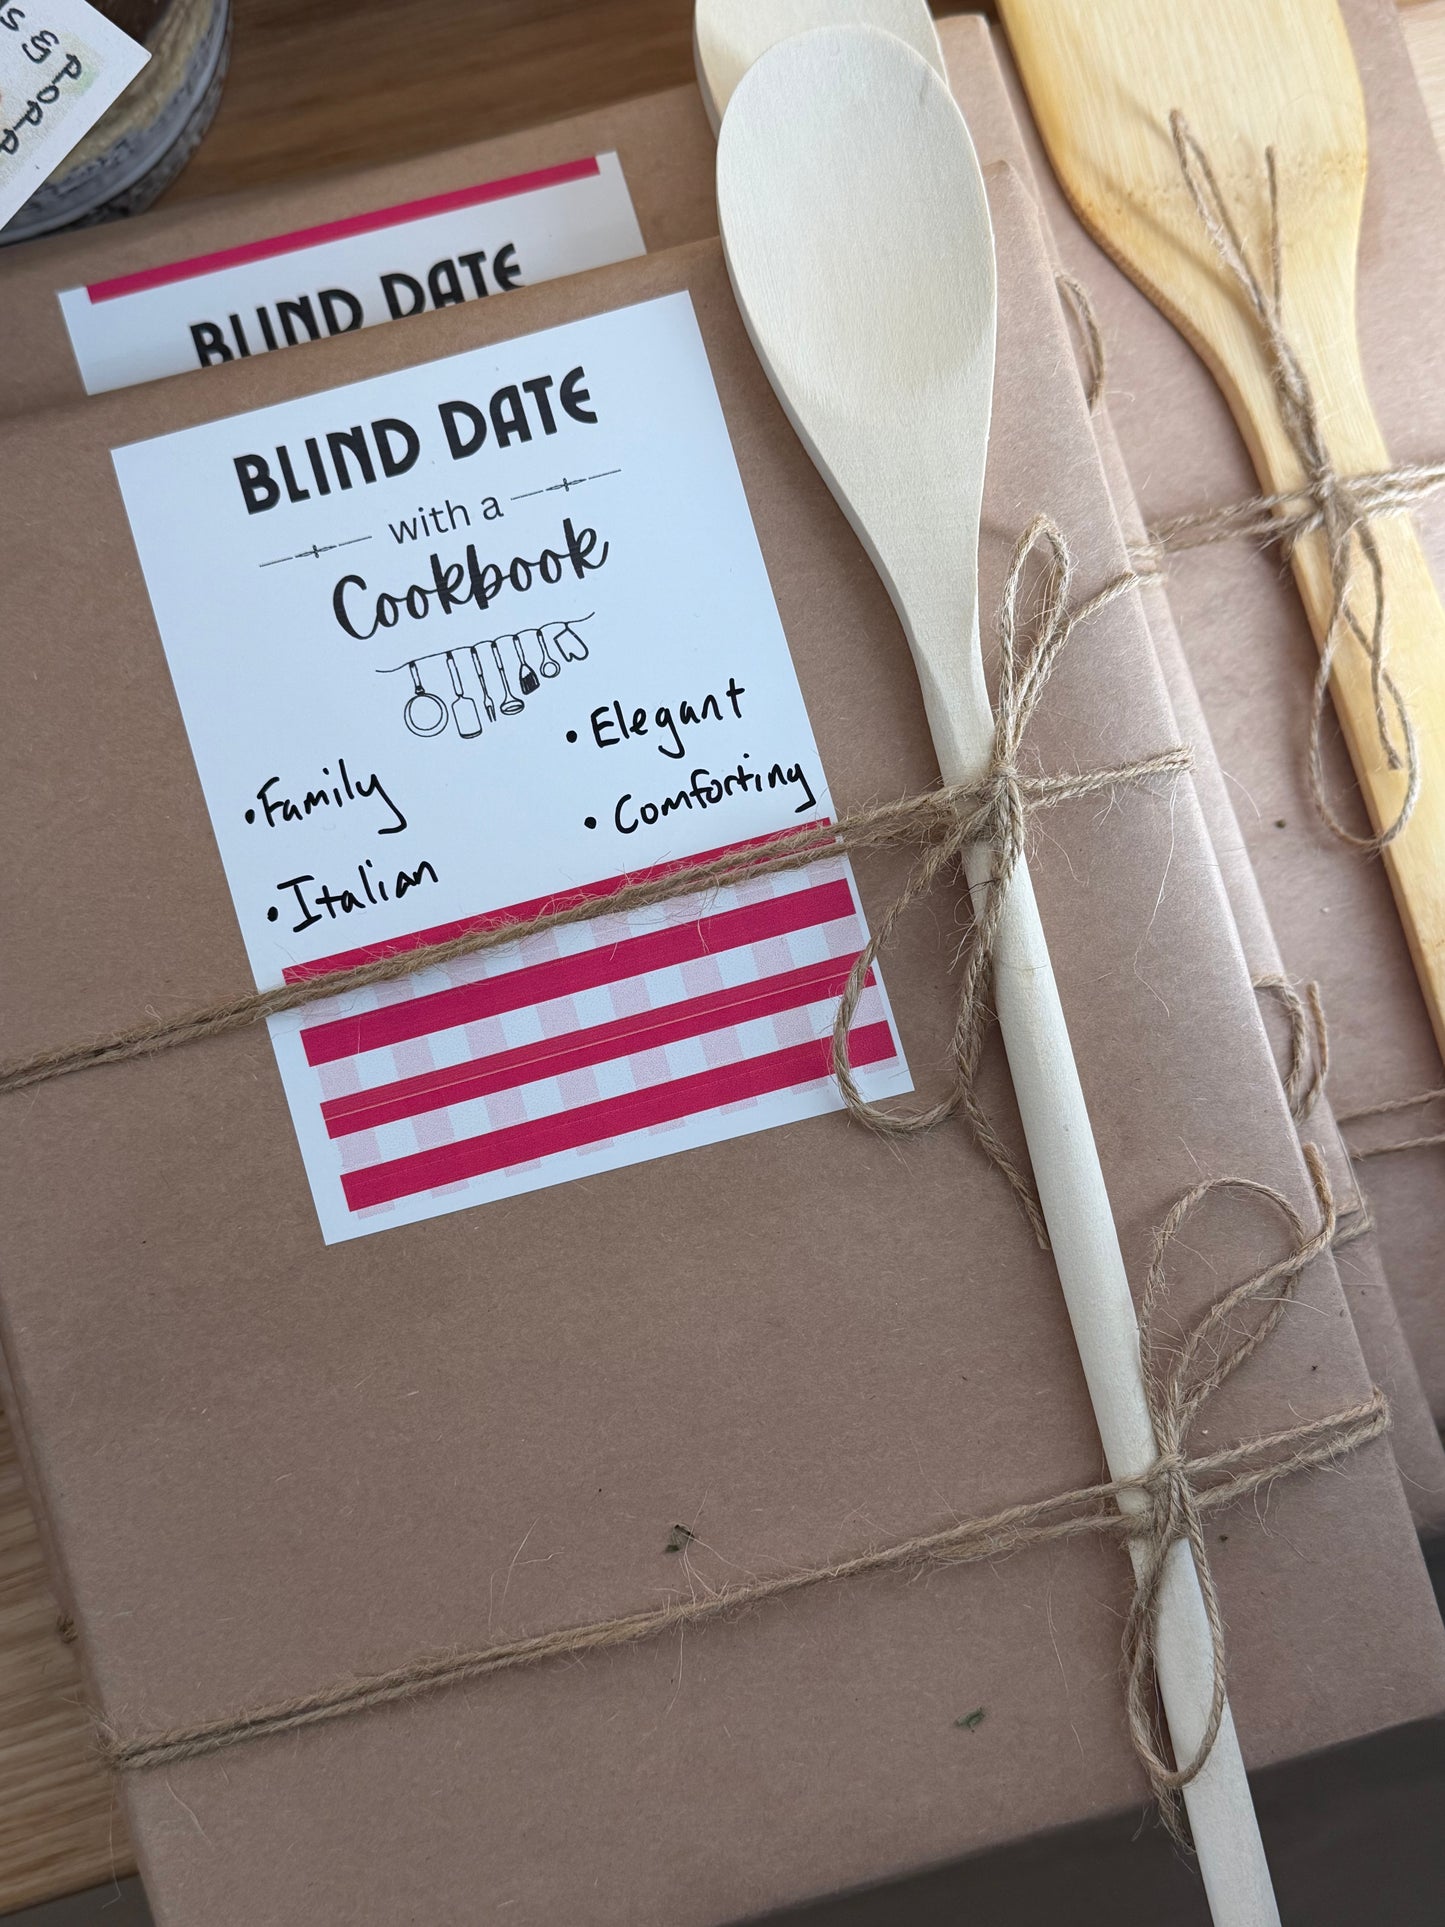 POPP
BLIND DATE
BLIND DATE
with a
Cookbook
• Elegant
• Comforting
• Family
• Italian